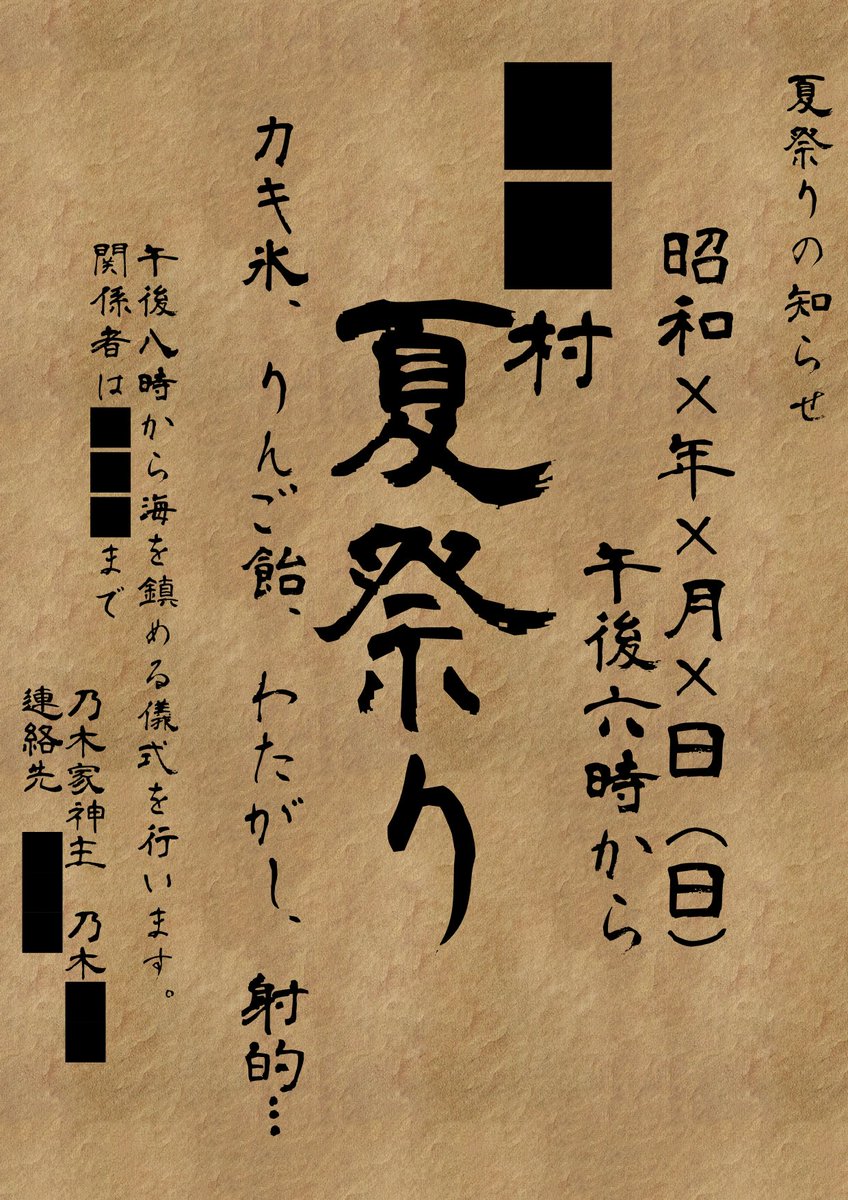 夏祭りの知らせ
昭和×年×月×日（日）
午後六時から
■■村
夏祭り
カキ氷、りんご飴、わたがし、射的…
午後八時から海を鎮める儀式を行います。
関係者は■■■まで
乃木家神主　乃木■
連絡先■